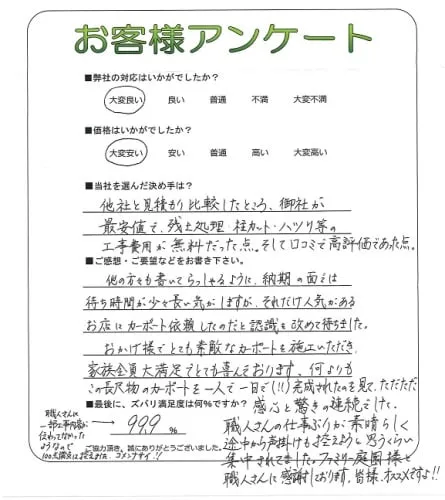 お客様アンケート
■弊社の対応はいかがでしたか?
大変良い 良い 普通 不満 大変不満
■価格はいかがでしたか?
大変安い 安い 普通 高い 大変高い
■当社を選んだ決め手は?
他社と見積もり比較したところ、御社が
最安値で、残土処理・柱カット・ハツリ等の
工事費用が無料だった点。そして口コミで高評価であった点。
■ご感想・ご要望などをお書き下さい。
他の方々も書いてらっしゃるように、納期の面では
待ち時間が少々長い気がしますが、それだけ人気がある
お店にカーポート依頼したのだと認識を改めて待ちました。
おかげ様でとても素敵なカーポートを施工いただき
家族全員大満足でとても喜んでおります。何よりも
この長尺物のカーポートを一人で一日で(!!)完成されたのを見て、ただただ
感心と驚きの連続でした。
■最後に、ズバリ満足度は何%ですか?
99.9 %
職人さんの仕事ぶりが素晴らしく
途中から声掛けも控えようと思うくらい
集中されてました。ファミリー庭園様と
職人さんに感謝しております。皆様、オススメですよ!!
ご協力頂き、誠にありがとうございました。
職人さんに
一部工事内容が
伝わってなかった
ようなので
100点満点は控えました。ゴメンナサイ!!